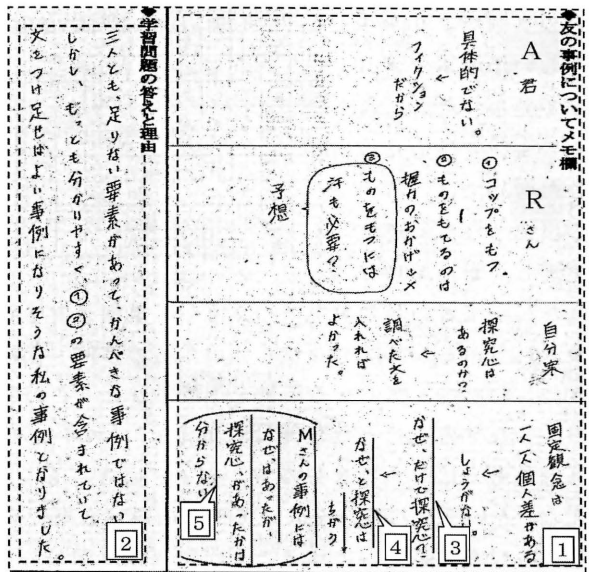 ◆友の事例についてメモ欄
A君
具体的でない。
←
フィクション
だから
Rさん
①コップをもつ。
②ものをもてるのは
握力のおかげ
③ものをもつには
汗も必要?
予想
自分案
探究心は
あるのか?
←
調べた文を
入れれば
よかった。
固定観念は
一人一人個人差がある
1
←
しょうがない。
なぜ、だけで探究心?
3
←
なぜ、と探究心は
ちがう。
4
Mさんの事例には
なぜ、はあったが、
探究心、があったかは
分からない
5
◆学習問題の答えと理由
三人とも、足りない要素があって、かんぺきな事例ではない
しかし、もっとも分かりやすく、①②の要素が含まれていて
文をつけ足せばよい事例になりそうな私の事例となりました。
2